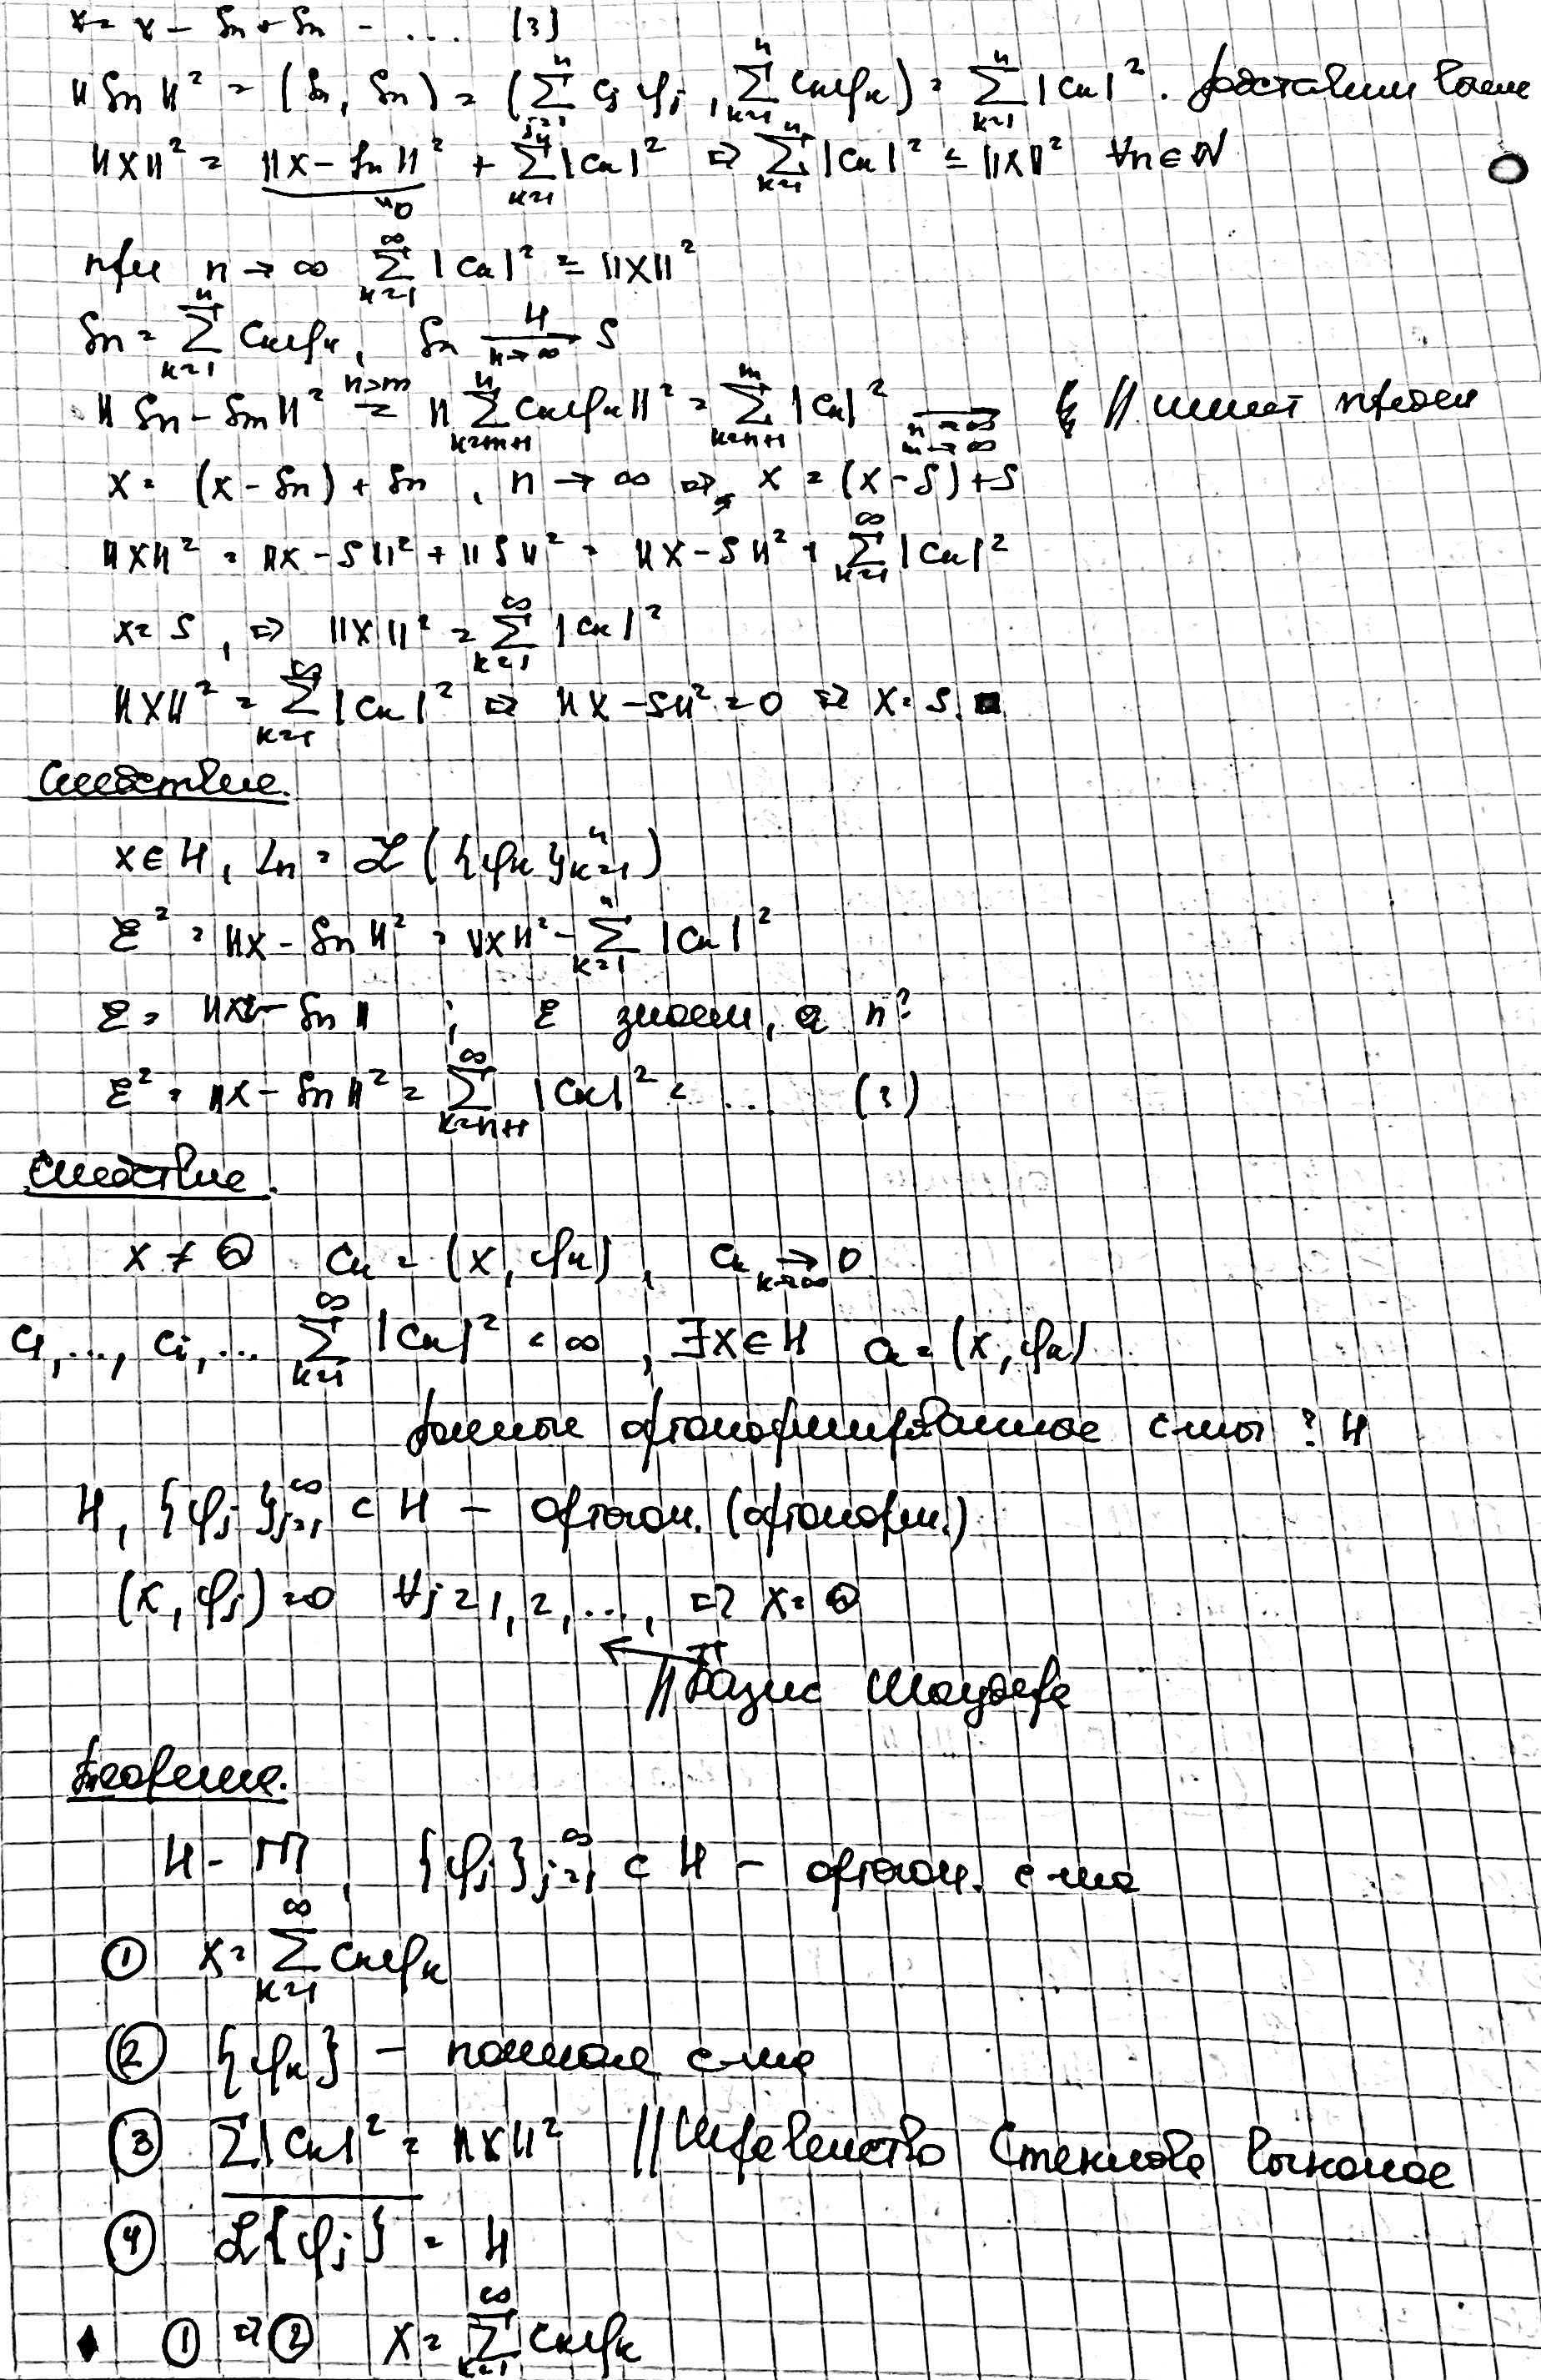 x = x − Sn + Sn − ... (3)
‖Sn‖² = (Sn, Sn) = (∑_{j=1}^{n} cj φj, ∑_{k=1}^{n} ck φk) = ∑_{k=1}^{n} |ck|². Подставим выше
‖x‖² = ‖x − Sn‖² + ∑_{k=1}^{n} |ck|² ⇒ ∑_{k=1}^{n} |ck|² ≤ ‖x‖² ∀n ∈ N
≥0
при n → ∞ ∑_{k=1}^{∞} |ck|² ≤ ‖x‖²
Sn = ∑_{k=1}^{n} ck φk, Sn →^{H}_{n→∞} S
‖Sn − Sm‖² =^{n>m} ‖∑_{k=m+1}^{n} ck φk‖² = ∑_{k=n+1}^{m} |ck|² →_{n→∞, m→∞} // имеет предел
x = (x − Sn) + Sn, n → ∞ ⇒ x = (x − S) + S
‖x‖² = ‖x − S‖² + ‖S‖² = ‖x − S‖² + ∑_{k=1}^{∞} |ck|²
x = S, ⇒ ‖x‖² = ∑_{k=1}^{∞} |ck|²
‖x‖² = ∑_{k=1}^{∞} |ck|² ⇒ ‖x − S‖² = 0 ⇒ x = S. ■
Следствие.
x ∈ H, Ln = ℒ({φk}_{k=1}^{n})
ε² = ‖x − Sn‖² = ‖x‖² − ∑_{k=1}^{n} |ck|²
ε = ‖x − Sn‖ ; ε знаем, а n?
ε² = ‖x − Sn‖² = ∑_{k=n+1}^{∞} |ck|² < ... (?)
Следствие.
x ≠ Θ ck = (x, φk), ck →_{k→∞} 0
c1, ..., ci, ... ∑_{k=1}^{∞} |ck|² < ∞, ∃x ∈ H ck = (x, φk)
Полные ортонормированные с-мы ? H
H, {φj}_{j=1}^{∞} ⊂ H − ортогон. (ортонорм.)
(x, φj) = 0 ∀j = 1, 2, ..., ⇒ x = Θ
// Базис Шаудера
Теорема.
H − ГП, {φj}_{j=1}^{∞} ⊂ H − ортогон. с-ма
① x = ∑_{k=1}^{∞} ck φk
② {φk} − полная с-ма
③ ∑|ck|² = ‖x‖² // Стеклова
④ \overline{ℒ{φj}} = H
♦ ① ⇒ ② x = ∑_{k=1}^{∞} ck φk